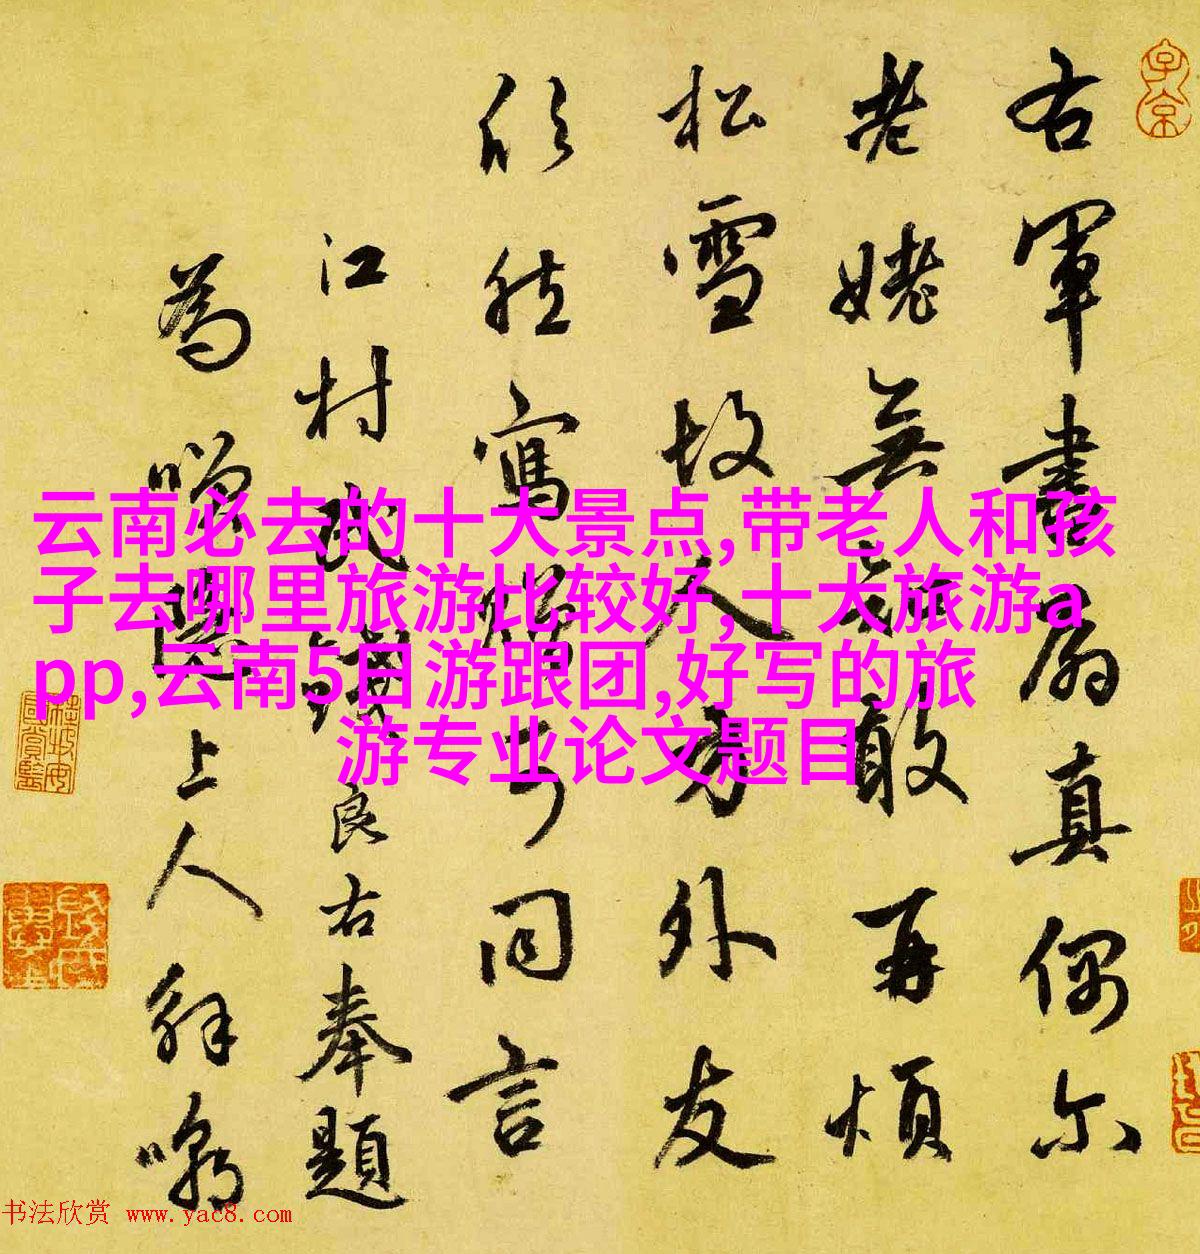 右軍書扇真偶尔
老姥無敢再煩
松雪故人方外友
欣然寫贈同言
江村民錢良右奉題
為隱上人解嘲
云南必去的十大景点,带老人和孩
子去哪里旅游比较好,十大旅游a
pp,云南5日游跟团,好写的旅
游专业论文题目
书法欣赏 www.yac8.com